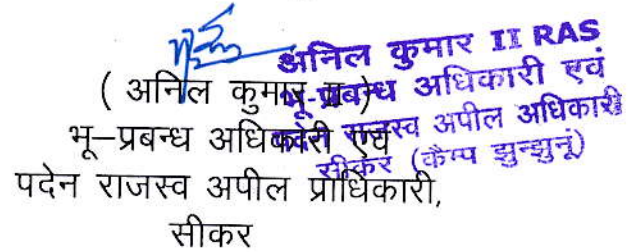 अनिल कुमार II RAS
भू-प्रबन्ध अधिकारी एवं
पदेन राजस्व अपील अधिकारी
सीकर (कैम्प झुन्झुनूं)
( अनिल कुमार II )
भू–प्रबन्ध अधिकारी एवं
पदेन राजस्व अपील प्राधिकारी,
सीकर